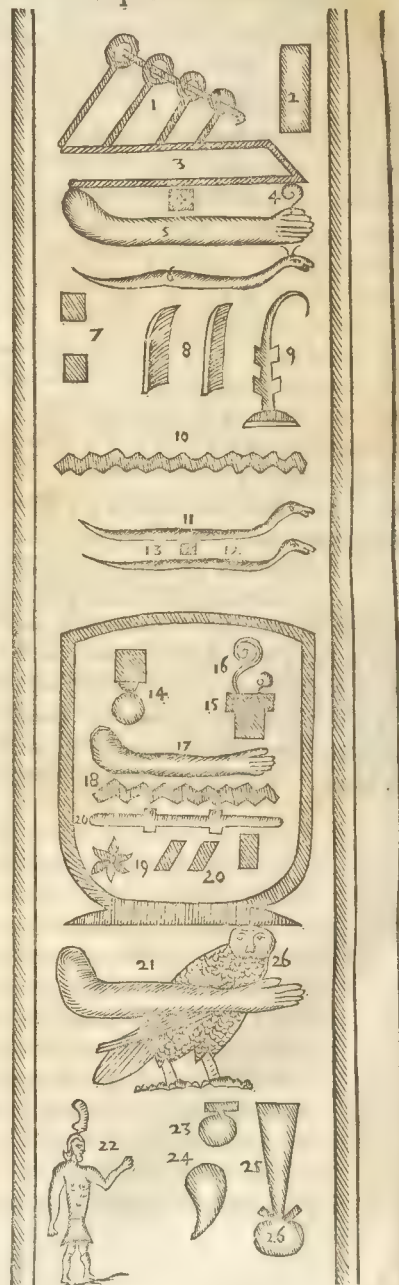 1
2
3
4
5
6
7
8
9
10
11
13 12
14
16
15
17
18
20
19
20
21
26
22
23
24
25
26